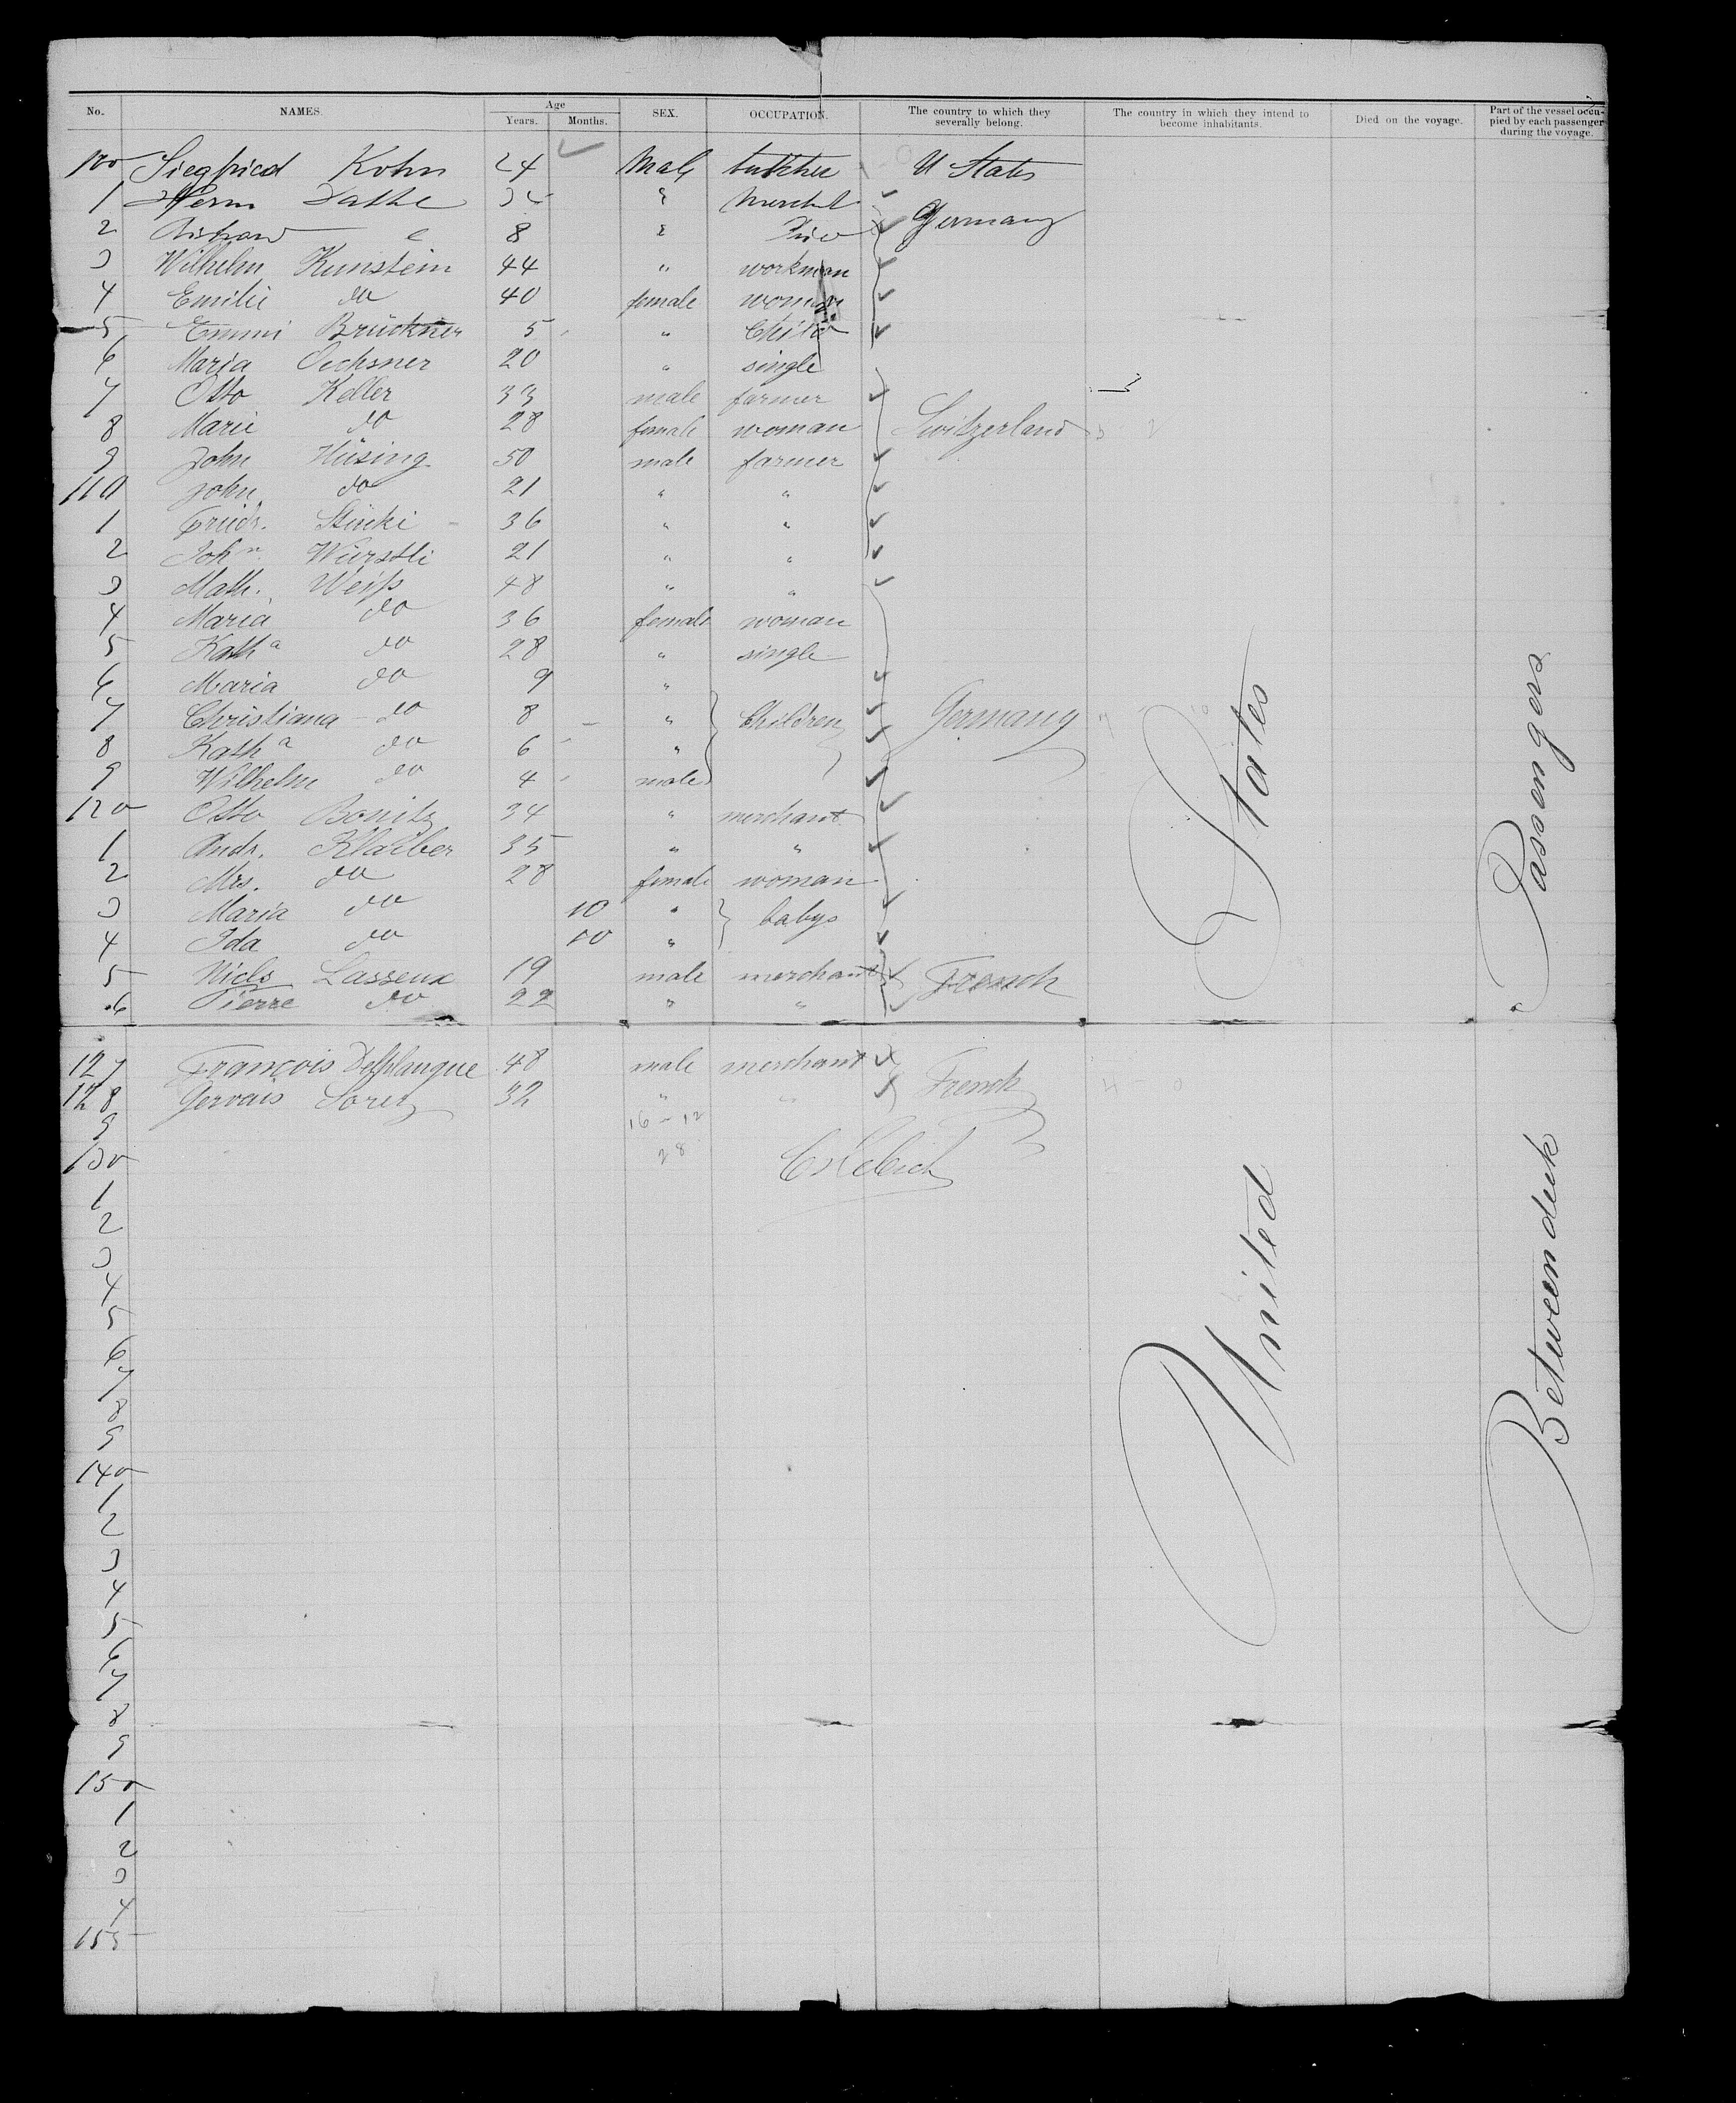 No. NAMES. Age Years. Months. SEX. OCCUPATION. The country to which they severally belong. The country in which they intend to become inhabitants. Died on the voyage. Part of the vessel occupied by each passenger during the voyage.
100 Siegfried Kohn 24 Male butcher U States
1 Herm Dathe mercht
2 8 Germany
3 Wilhelm Kunstein 44 " workman
4 Emilie do 40 female woman
5 Emmi Brückner 5 " Child
6 Maria Oechsner 20 " single
7 Otto Keller 33 male farmer
8 Marie do 28 female woman Switzerland
9 John Hüsing 50 male farmer
110 John do 21 " "
1 Friedr. Stücki 36 " "
2 John Würstli 21 " "
3 Math. Weiss 48 " "
4 Maria do 36 female woman
5 Katha do 28 " single
6 Maria do 9 "
7 Christiana do 8 " Children Germany
8 Katha do 6 "
9 Wilhelm do 4 male
120 Otto Bonitz 34 " merchant
1 Andr. Klaiber 35 " "
2 Mrs. do 28 female woman
3 Maria do 10 " babys
4 Ida do 10 "
5 Nicls Lasseux 19 male merchant French
6 Pierre do 22 " "
127 François Delplanque 48 male merchant
128 Gervais Sorez 32 " " French
9 16-12
130 28
1
2
3
4
5
6
7
8
9
140
1
2
3
4
5
6
7
8
9
150
1
2
3
4
155
United States
Betweendeck Passengers